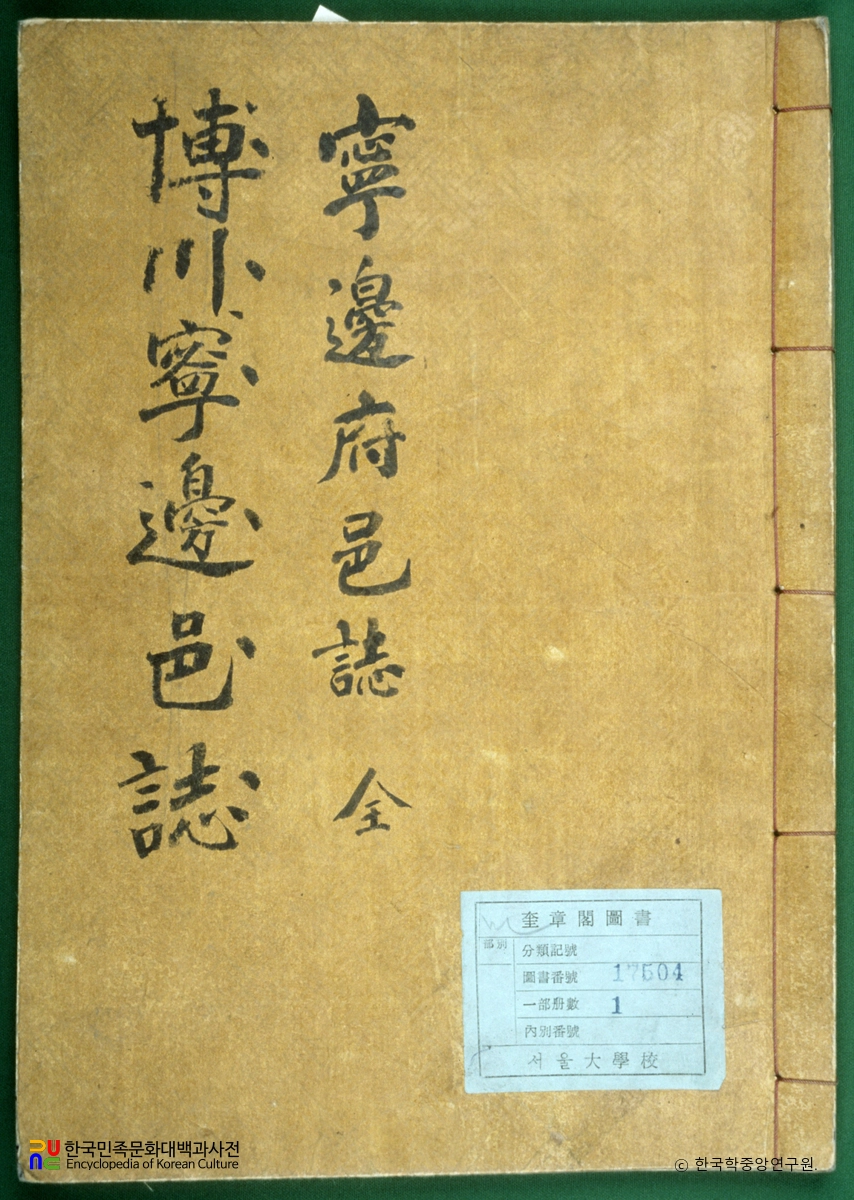 寧邊府邑誌 全
博川寧邊邑誌
奎章閣圖書
部別
分類記號
圖書番號 17504
一部册數 1
內別番號
서울大學校
한국민족문화대백과사전
Encyclopedia of Korean Culture
© 한국학중앙연구원.